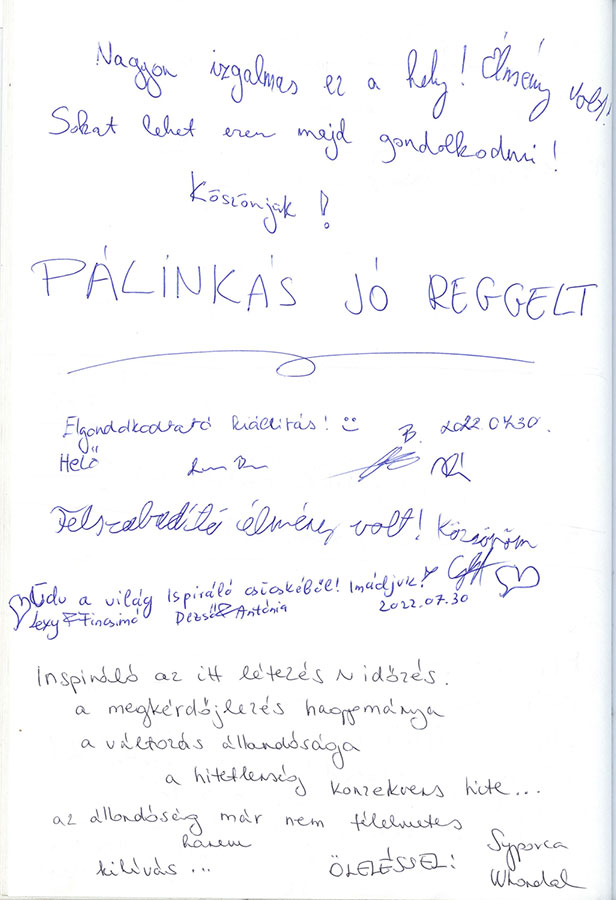 Nagyon izgalmas ez a hely! Élmény volt!
Sokat lehet ezen majd gondolkodni!
Köszönjük!
PÁLINKÁS JÓ REGGELT
Elgondolkodtató kiállítás! :) B. 2022.07.30.
Helő
Felszabadító élmény volt! Köszönöm
Üdv a világ Ispiráló csücskéből! Imádjuk!
Lexy & Finosimó Dezső & Antónia 2022.07.30
Inspiráló az itt létezés N időzés.
a megkérdőjelezés hagyománya
a változás állandósága
a hitetlenség konzekvens hite...
az állandóság már nem félelmetes
hanem
kihívás... ÖLELÉSSEL: